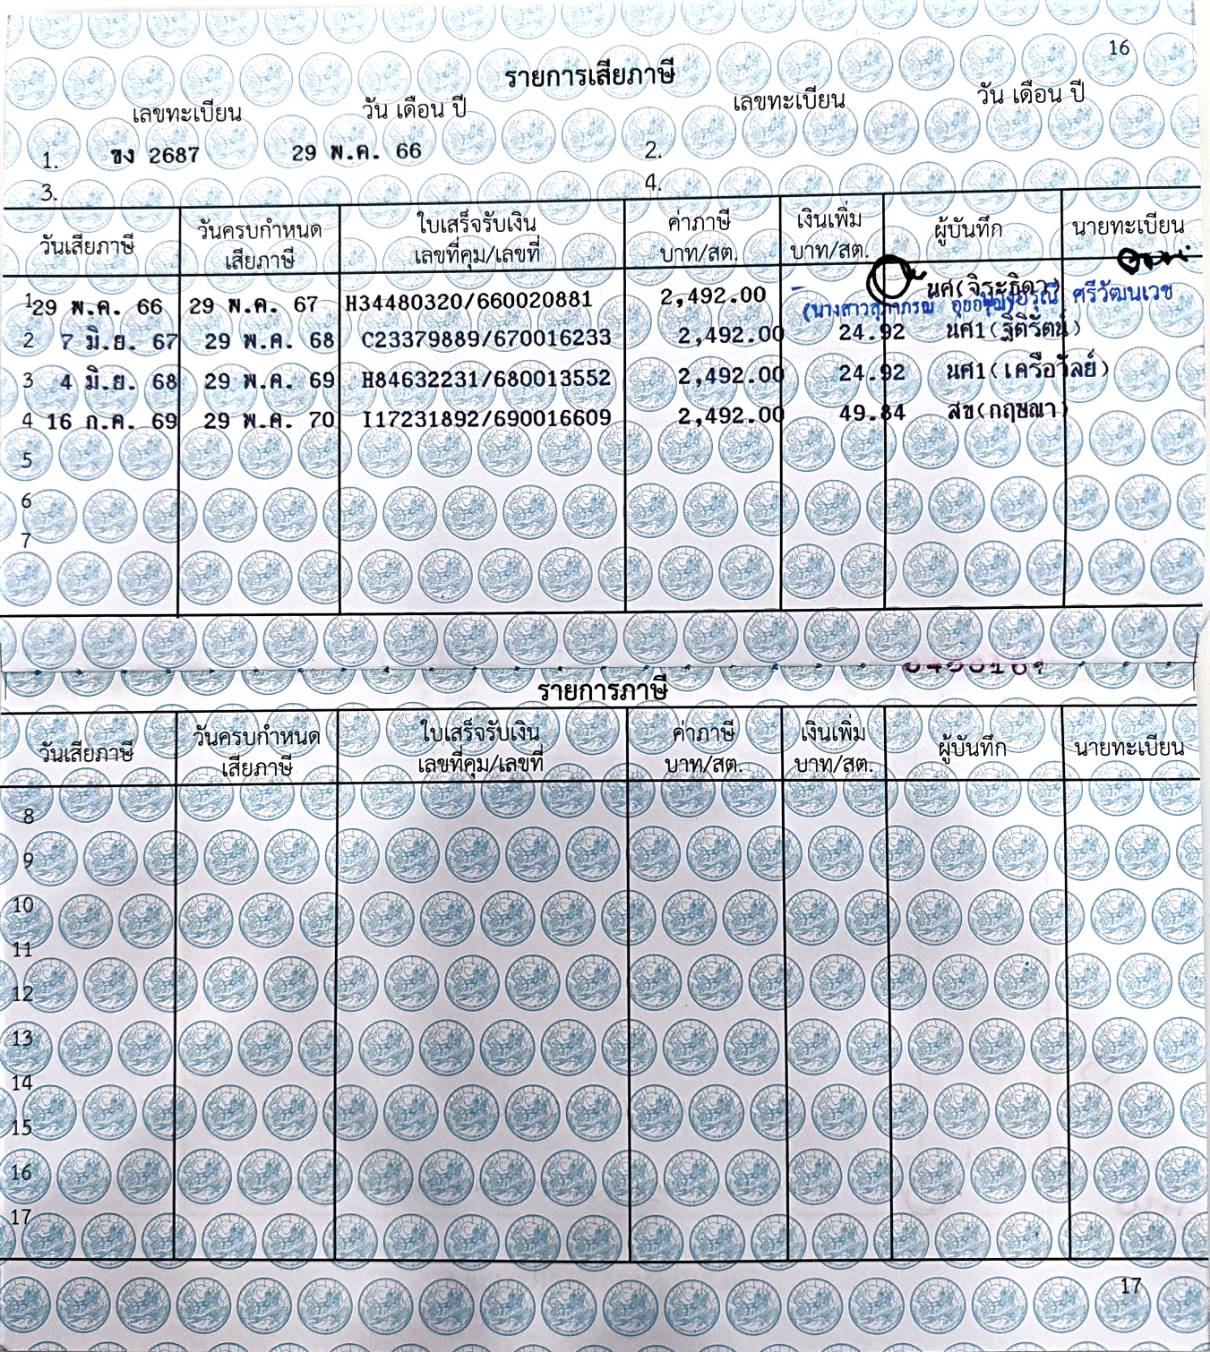 16
รายการเสียภาษี
เลขทะเบียน วัน เดือน ปี เลขทะเบียน วัน เดือน ปี
1. ขง 2687 29 พ.ค. 66 2.
3. 4.
วันเสียภาษี วันครบกำหนด เสียภาษี ใบเสร็จรับเงิน เลขที่คุม/เลขที่ ค่าภาษี บาท/สต. เงินเพิ่ม บาท/สต. ผู้บันทึก นายทะเบียน
1 29 พ.ค. 66 29 พ.ค. 67 H34480320/660020881 2,492.00 - นศ(จิระธิดา)
ศรีวัฒนเวช
2 7 มิ.ย. 67 29 พ.ค. 68 C23379889/670016233 2,492.00 24.92 นศ1(ฐิติรัตน์)
3 4 มิ.ย. 68 29 พ.ค. 69 H84632231/680013552 2,492.00 24.92 นศ1(เครือวัลย์)
4 16 ก.ค. 69 29 พ.ค. 70 I17231892/690016609 2,492.00 49.84 สข(กฤษณา)
5
6
7
รายการภาษี
วันเสียภาษี วันครบกำหนด เสียภาษี ใบเสร็จรับเงิน เลขที่คุม/เลขที่ ค่าภาษี บาท/สต. เงินเพิ่ม บาท/สต. ผู้บันทึก นายทะเบียน
8
9
10
11
12
13
14
15
16
17
17